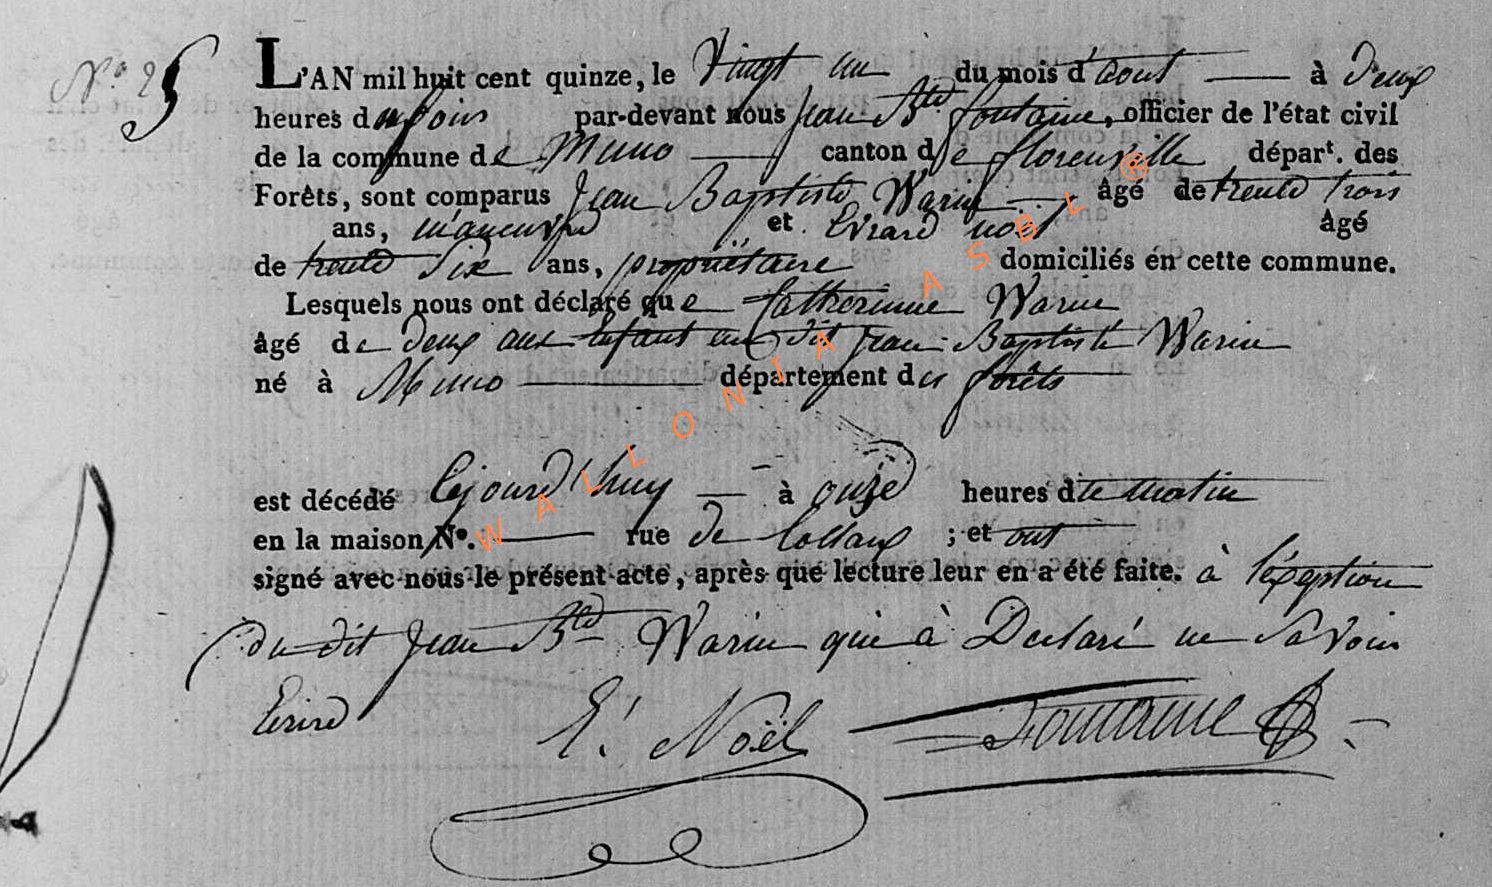 N.° 25
L'AN mil huit cent quinze, le Vingt un du mois d'aout à deux
heures du soir par-devant nous jean Bte fontaine, officier de l'état civil
de la commune de Muno canton de florenville départ. des
Forêts, sont comparus Jean Baptiste Warin âgé de trente trois
ans, manœuvre et Evrard noël âgé
de trente Six ans, propriétaire domiciliés en cette commune.
Lesquels nous ont déclaré que Catherinne Warin
âgé de deux ans Enfant du dit jean Baptiste Warin
né à Muno département des forêts
est décédé Cejourd'huy à onze heures du matin
en la maison N°. rue de ; et ont
signé avec nous le présent acte, après que lecture leur en a été faite. à l'exeption
du dit Jean Bte Warin qui à Declaré ne Savoir
Ecrire E. Noël Fontaine
WALLONIA ASBL ®